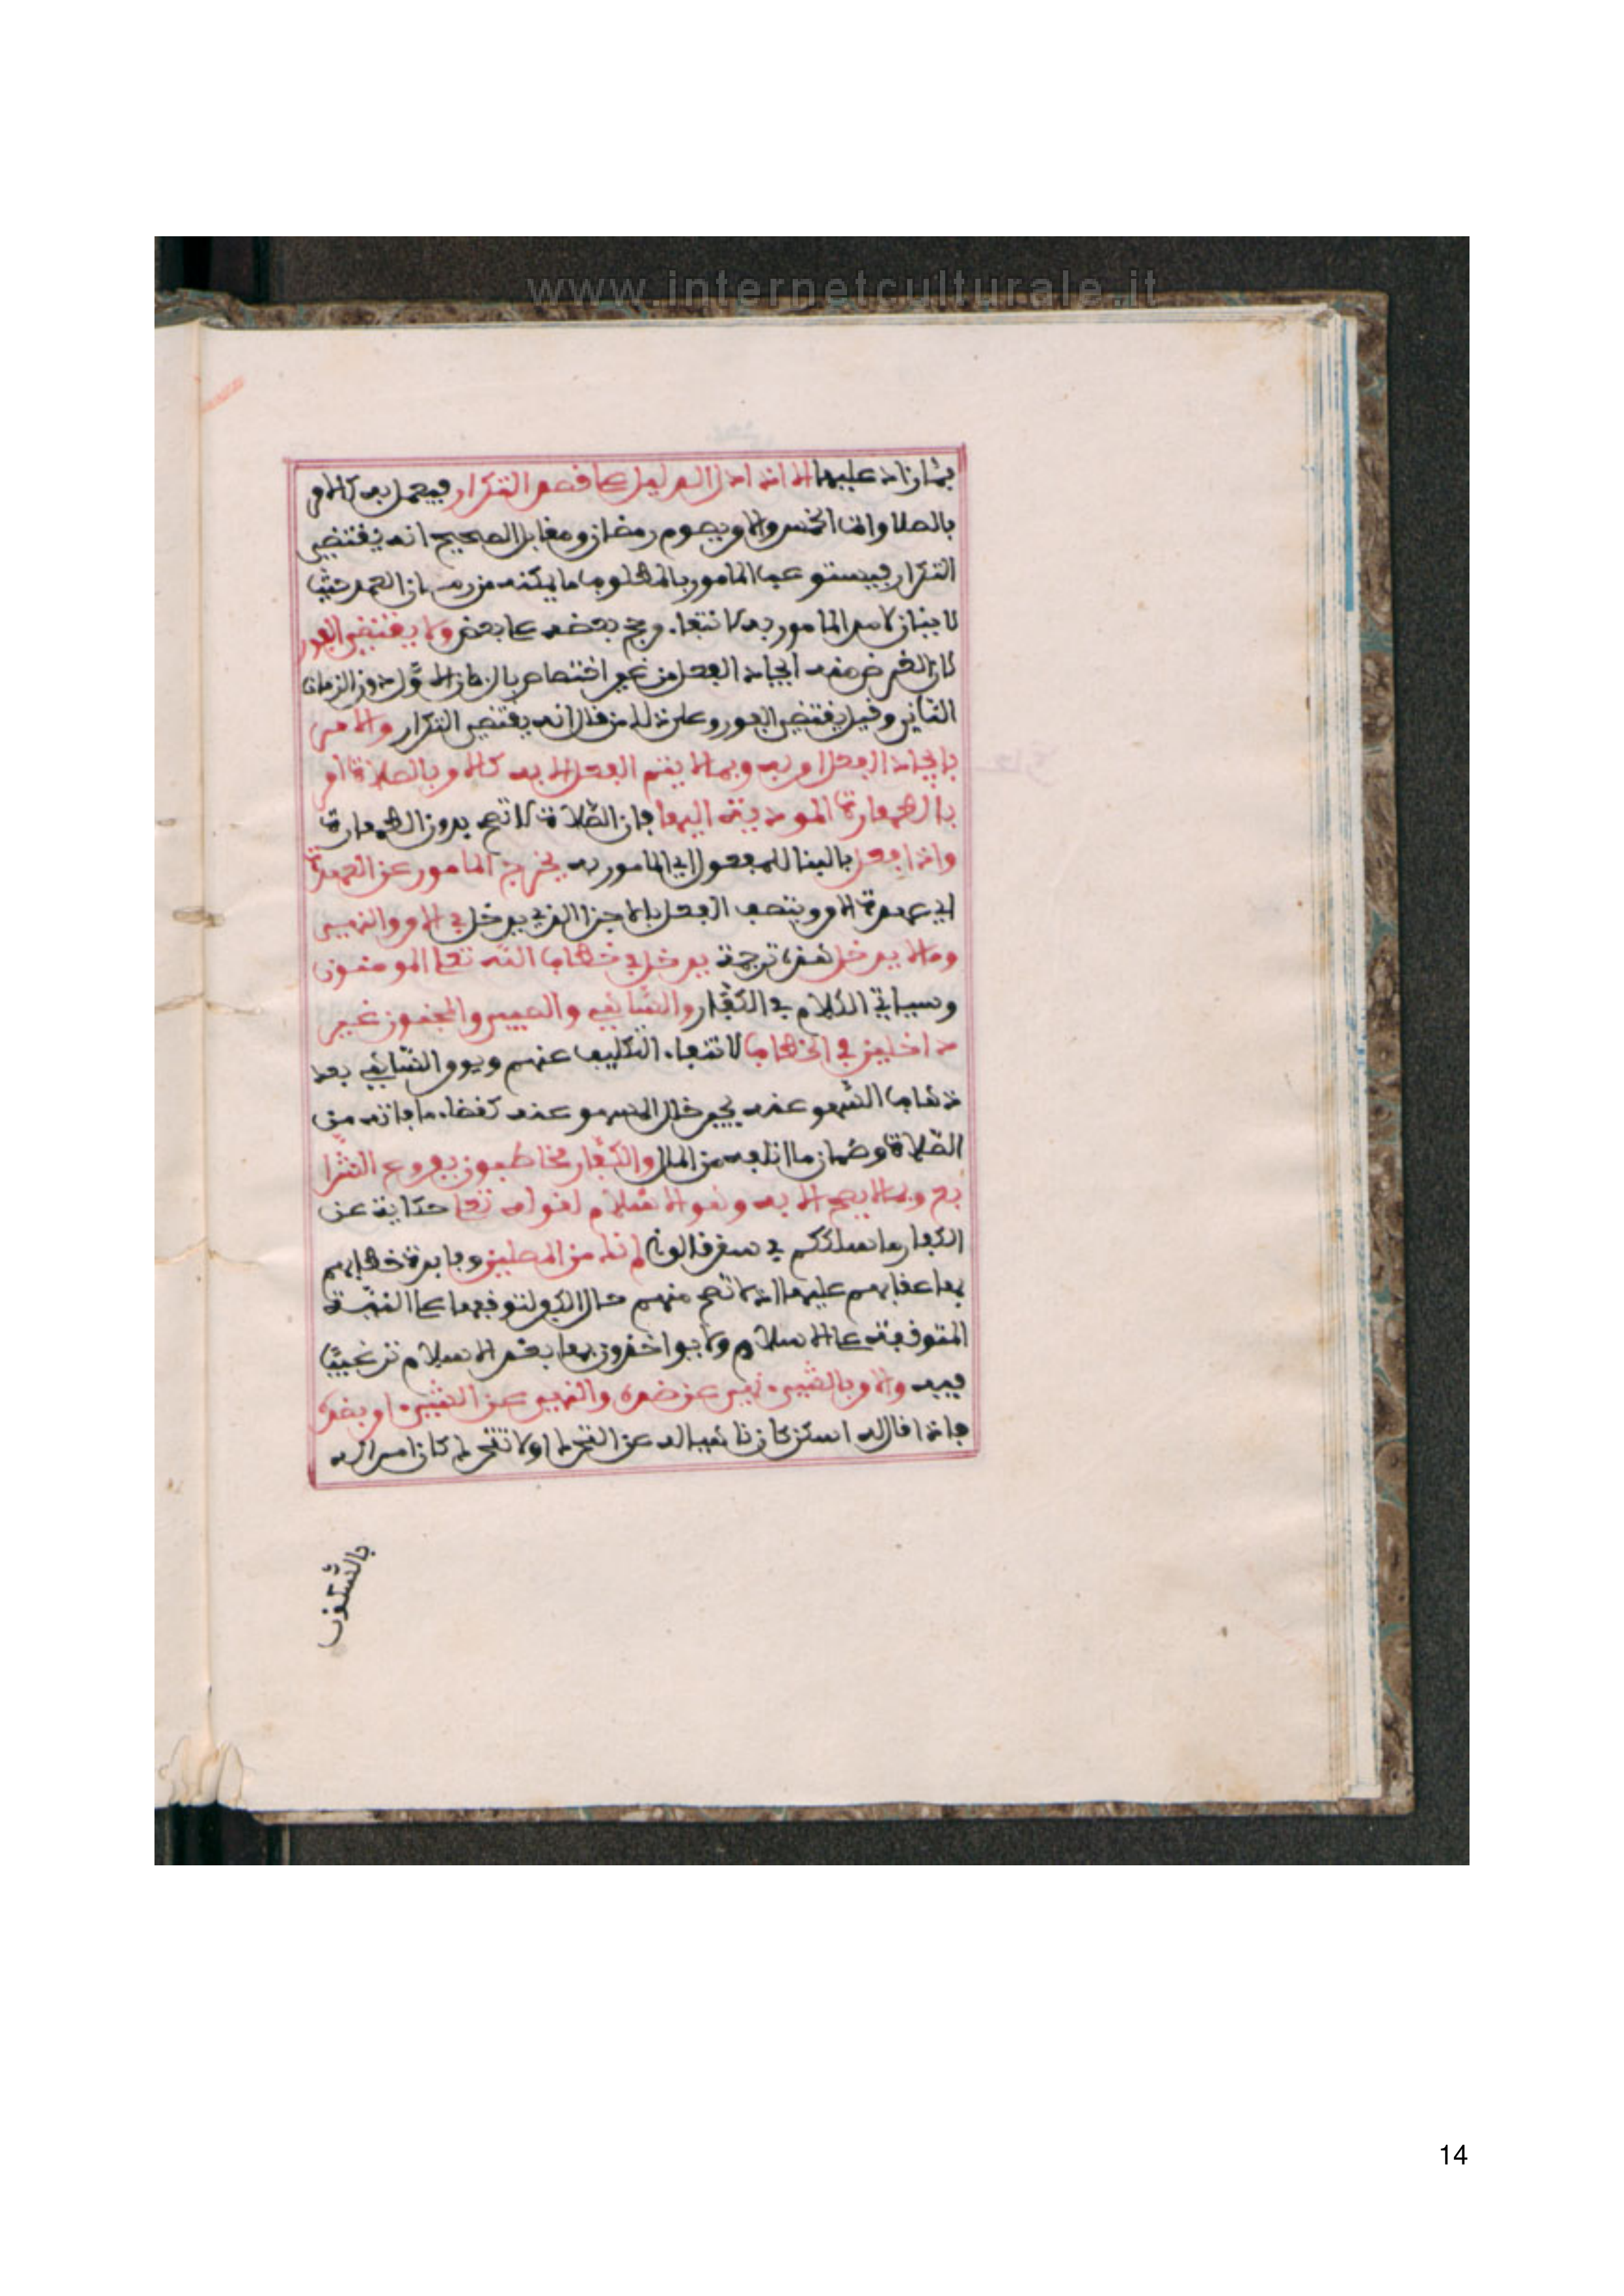 www.internetculturale.it
بما زاد عليها الا اذا دل الدليل على قصد التكرار فيعمل به كالامر
بالصلوات الخمس والامر بصوم رمضان ومقابل الصحيح انه يقتضي
التكرار فيستوعب المامور بالمطلوب ما يمكنه من زمان العمر حيث
لا بيان لامد المامور به لانتفاء مرجح بعضه على بعض ولا يقتضي الفور
لان الغرض منه ايجاد الفعل من غير اختصاص بالزمان الاول دون الزمان
الثاني وقيل يقتضي الفور وعلى ذلك من قال انه يقتضي التكرار والامر
بايجاد الفعل امر به وبما لا يتم الفعل الا به كالامر بالصلاة امر
بالطهارة المودية اليها فان الصلاة لا تصح بدون الطهارة
واذا فعل بالبنا للمفعول اي المامور به يخرج المامور عن العهدة
اي عهدة الامر ويتصف الفعل بالاجزا الذي يدخل في الامر والنهي
وما لا يدخل هذه ترجمة يدخل في خطاب الله تعلى المومنون
وسياتي الكلام في الكفار والساهي والصبي والمجنون غير
داخلين في الخطاب لانتفاء التكليف عنهم ويومر الساهي بعد
ذهاب السهو عنه بجبر خلل السهو عنه كقضاء ما فاته من
الصلاة وضمان ما اتلفه من المال والكفار مخاطبون بفروع الشرا
يع وبما لا يصح الا به وهو الاسلام لقوله تعلى حكاية عن
الكفار ما سلككم في سقر قالوا لم نك من المصلين وفايدة خطابهم
بها عقابهم عليها اذ لا تصح منهم حال الكفر لتوقفها على النية
المتوقفة على الاسلام ولا يواخذون بها بعد الاسلام ترغيبا
فيه والامر بالشيء نهي عن ضده والنهي عن الشيء امر بضده
فاذا قال له اسكن كان ناهيا له عن التحرك او لا تتحرك كان امرا له
بالسكون
14